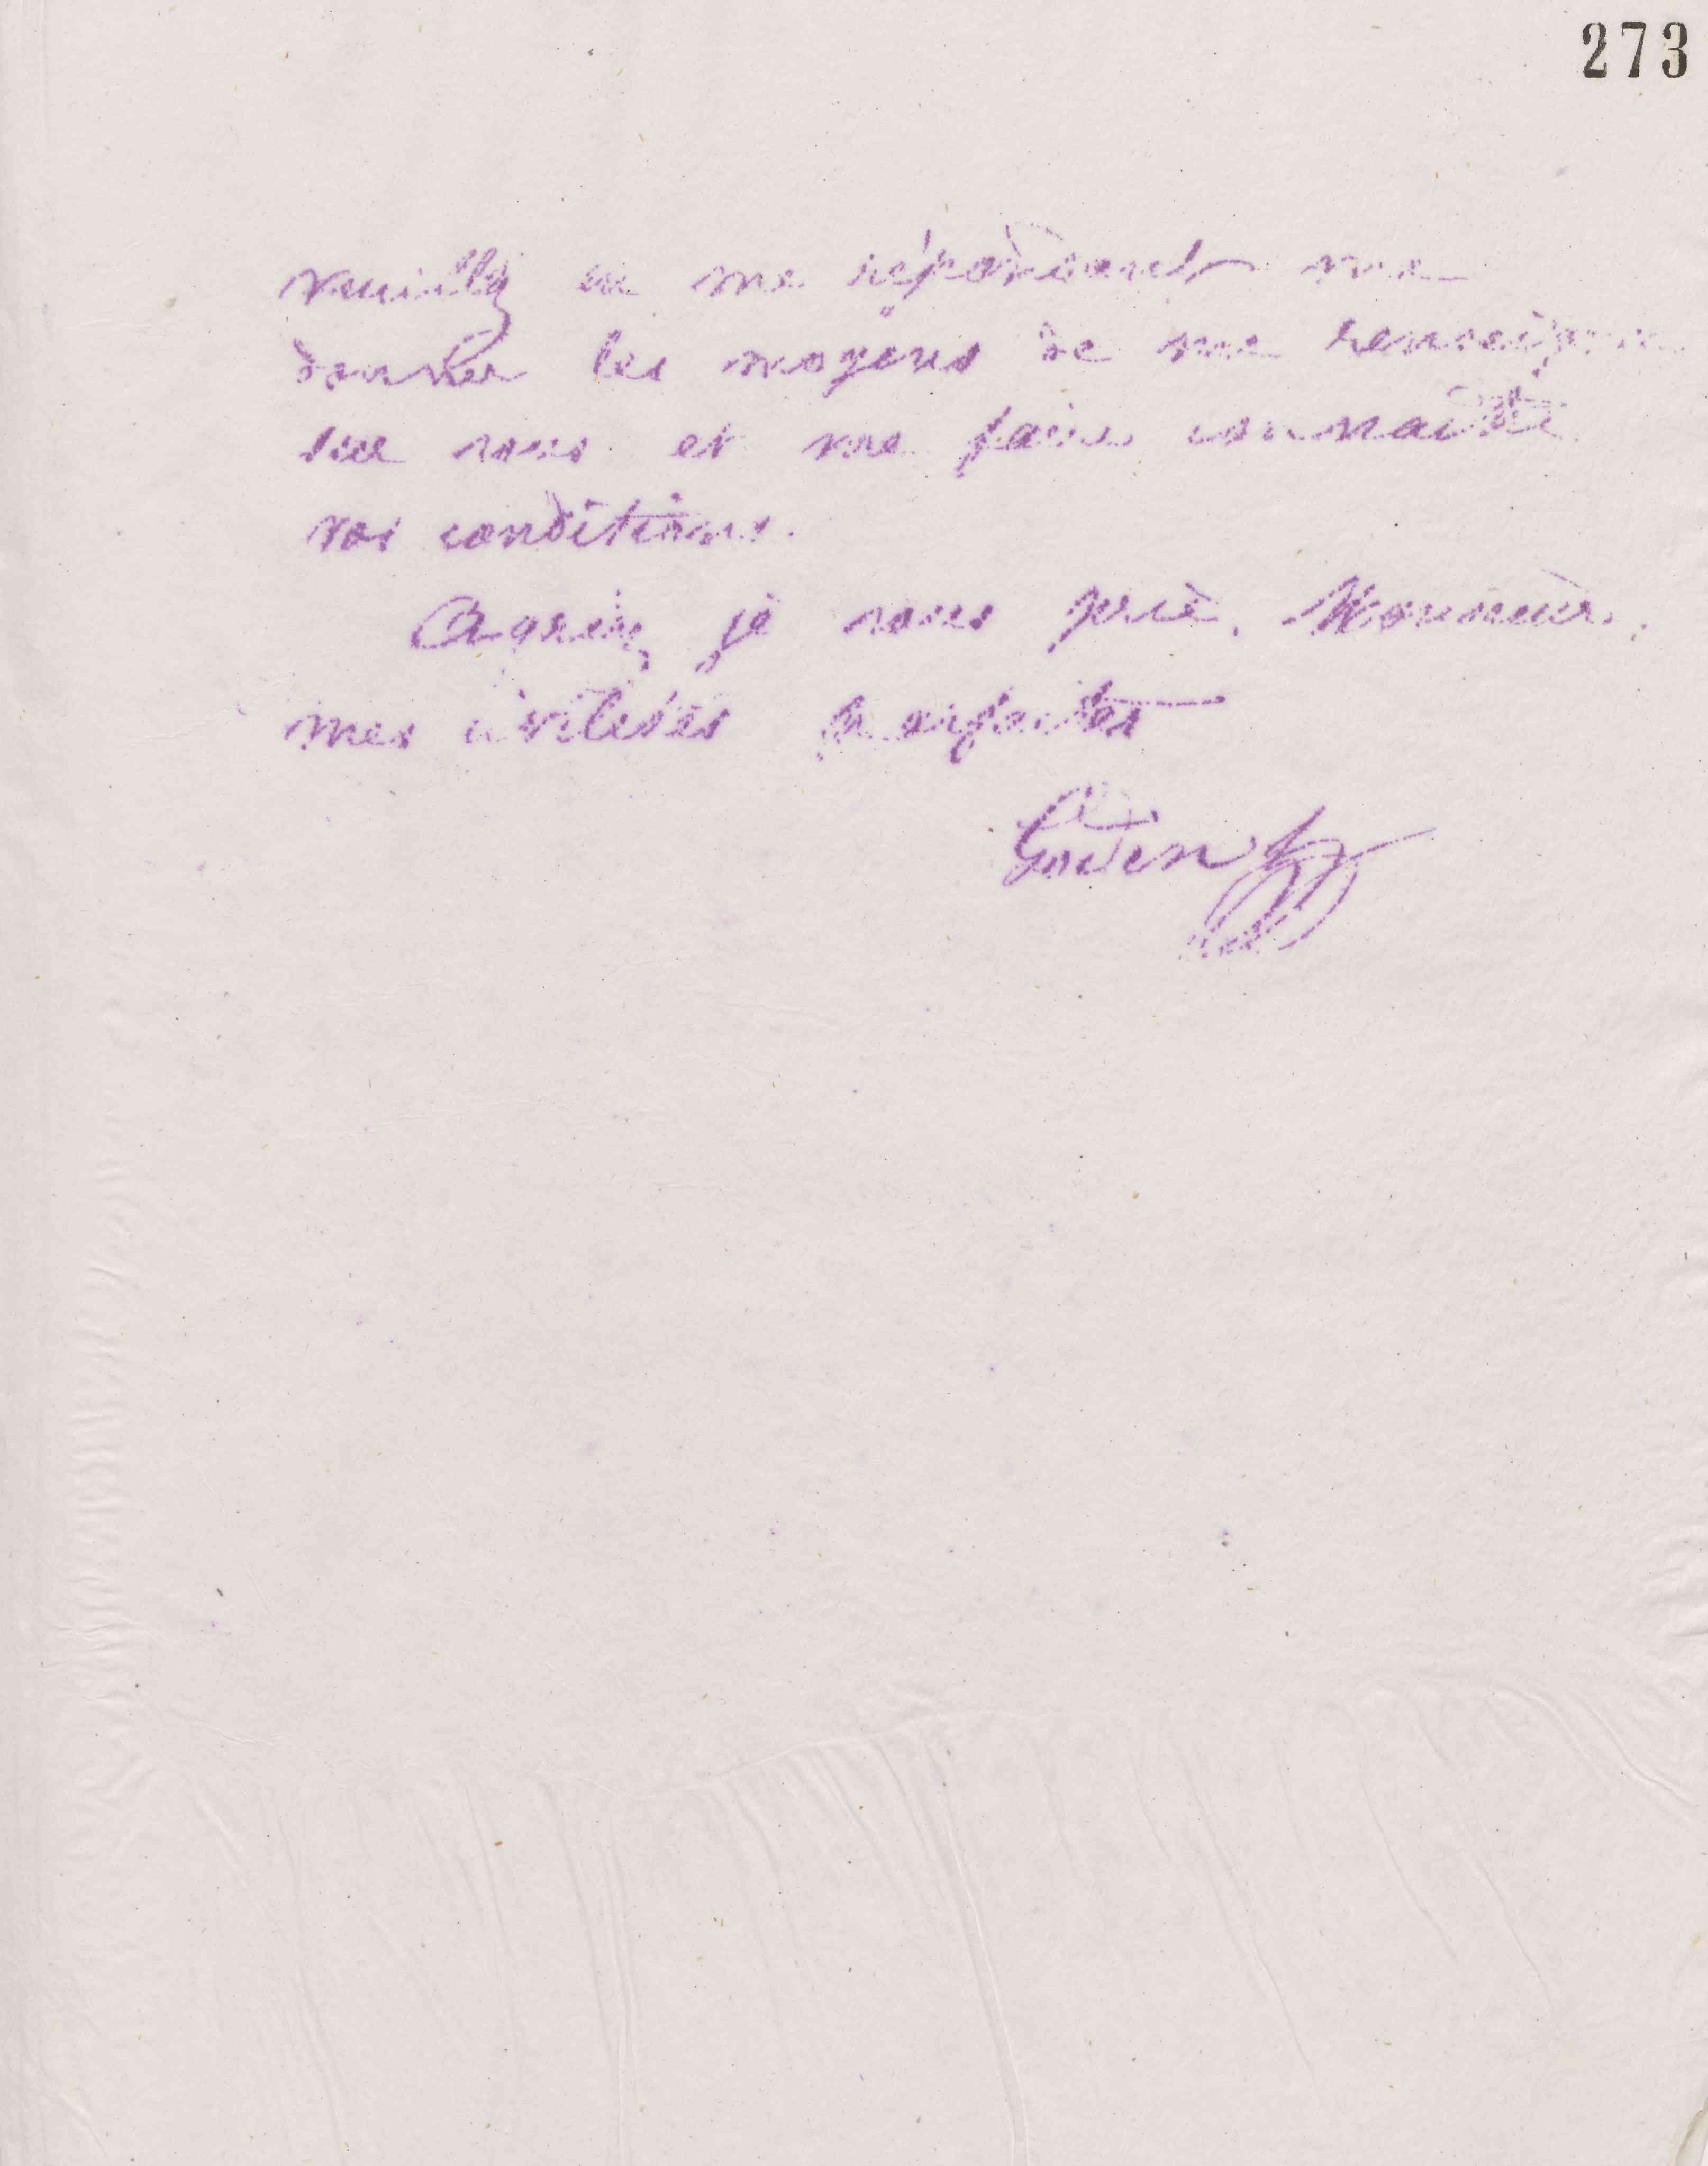 273
veuillez en me répondant me
donner les moyens de me renseigner
sur vous et me faire connaître
vos conditions.
Agréez, je vous prie, Monsieur,
mes civilités parfaites
Godin